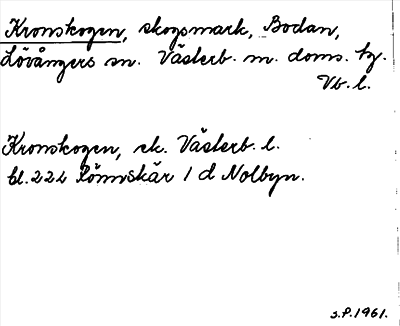 Kronskogen, skogsmark, Bodan,
Lövångers sn. Västerb. m. doms. tg.
Vb. l.
Kronskogen, ek. Västerb. l.
bl. 222 Rönnskär 1 d Nolbyn.
s.P.1961.